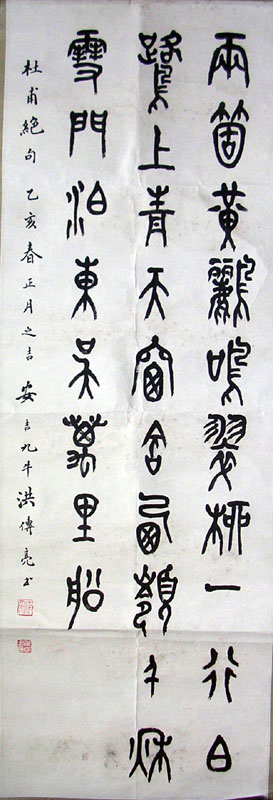 兩箇黃鸝鳴翠柳一行白
鷺上青天窗含西嶺千秋
雪門泊東吳萬里船
杜甫絕句 乙亥春正月之吉 安吉九牛洪傳亮書